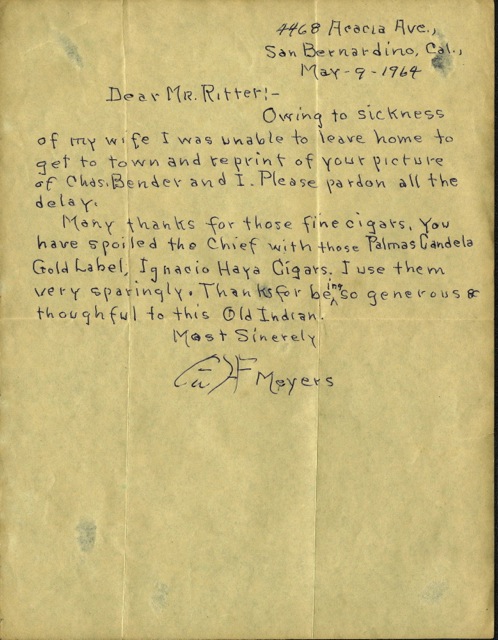 4468 Acacia Ave.,
San Bernardino, Cal.,
May-9-1964
Dear Mr. Ritter:-
Owing to sickness
of my wife I was unable to leave home to
get to town and reprint of your picture
of Chas. Bender and I. Please pardon all the
delay.
Many thanks for those fine cigars. You
have spoiled the Chief with those Palmas Candela
Gold Label, Ignacio Haya Cigars. I use them
very sparingly. Thanks for being so generous &
thoughtful to this Old Indian.
Most Sinerely
Meyers